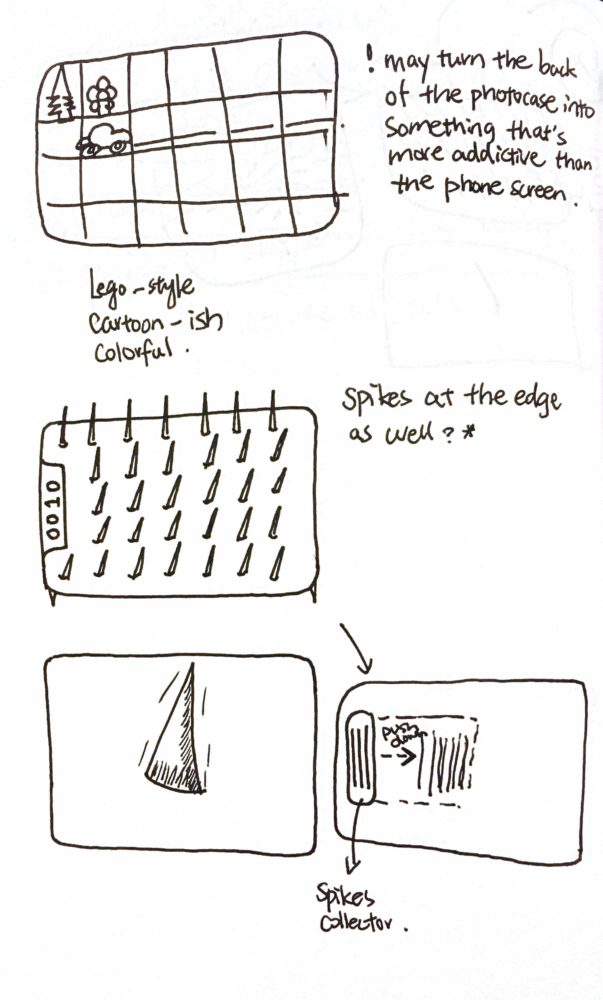 ! may turn the back
of the photocase into
something that's
more addictive than
the phone screen.
Lego-style
Cartoon-ish
Colorful.
Spikes at the edge
as well? *
0010
push
down
Spikes
collector.